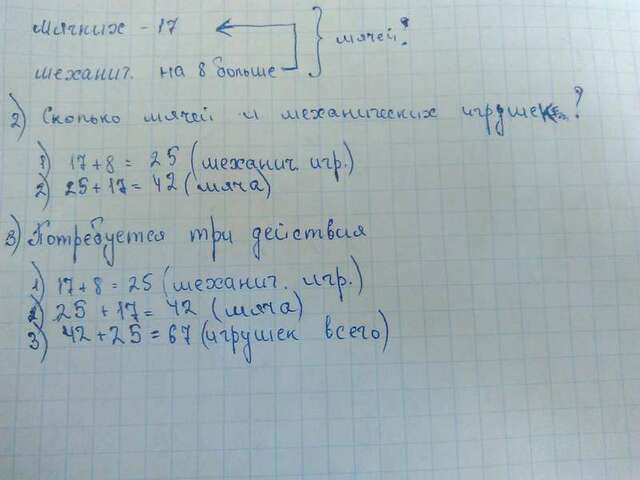 Мягких - 17
механич. на 8 больше
мячей?
2) Сколько мячей и механических игрушек?
1) 17+8 = 25 (механич. игр.)
2) 25+17= 42 (мяча)
3) Потребуется три действия
1) 17+8 = 25 (механич. игр.)
2) 25 +17= 42 (мяча)
3) 42+25 =67 (игрушек всего)